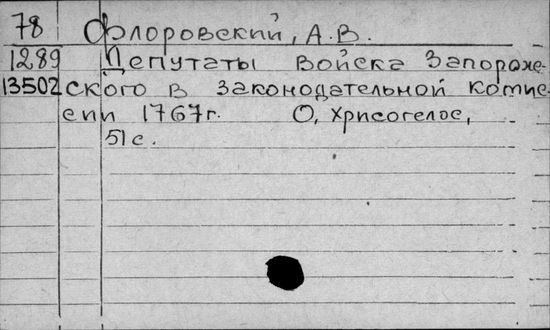 78 Флоровский, А.В.
1289 Депутаты Войска Запорож-
13502 ского в законодательной комис-
сии 1767г. О, Хрисогелос,
51с.